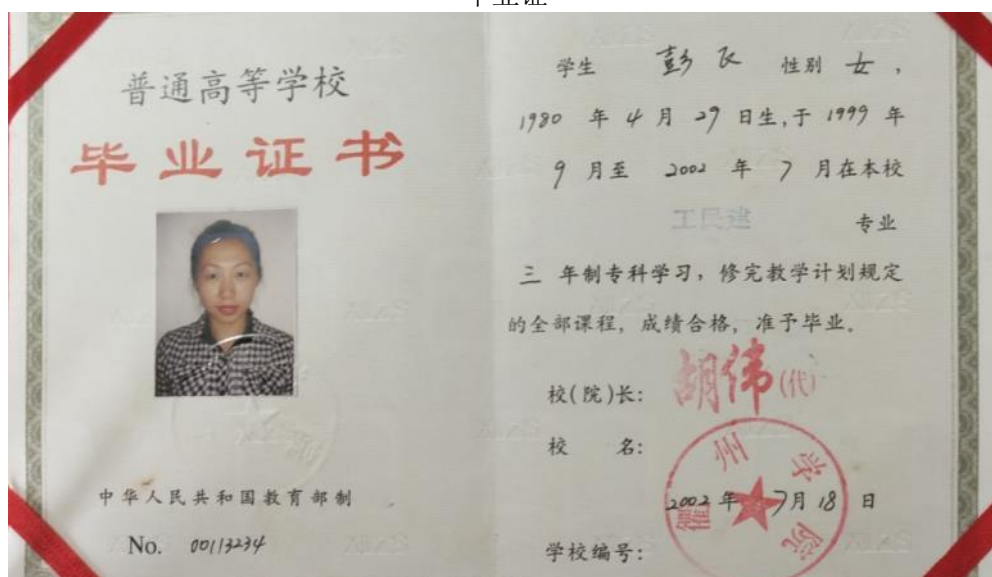 毕业证
普通高等学校
毕业证书
中华人民共和国教育部制
No. 00113234
学生 彭飞 性别 女，
1980 年 4 月 29 日生，于 1999 年
9 月至 2002 年 7 月在本校
工民建 专业
三 年制专科学习，修完教学计划规定
的全部课程，成绩合格，准予毕业。
校(院)长： 胡伟(代)
校 名： 州学院
2002 年 7 月 18 日
学校编号：